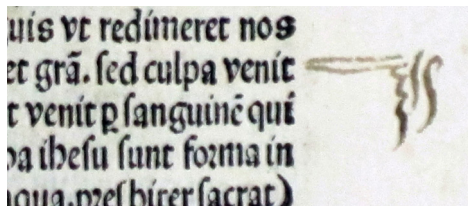 uis vt redimeret nos
et grã. sed culpa venit
t venit ꝑ sanguinẽ qui
pa ihesu sunt forma in
aqua. presbiter sacrat)